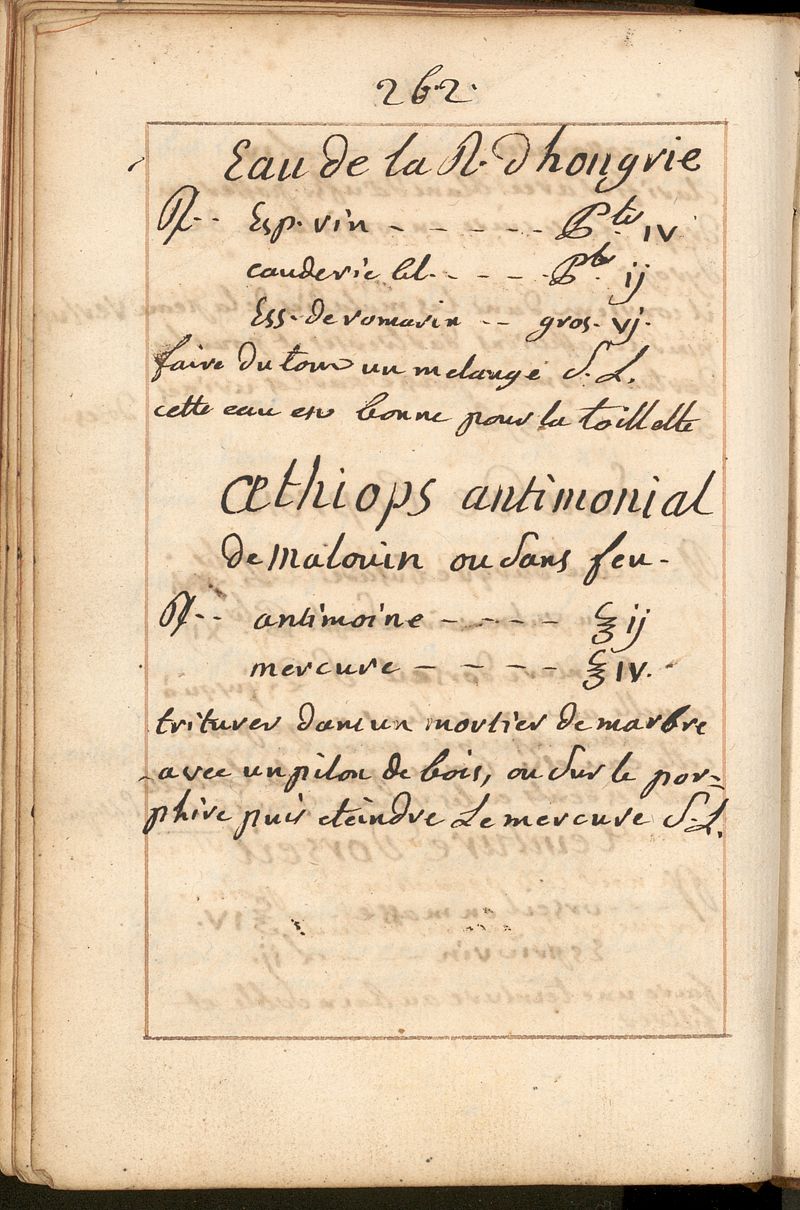 262.
Eau de la R. Dhongrie
℞.. Esp. vin - - - - - - P.te IV
eau de vie bl. - - - - P.te ij
Ess. de romarin - - gros. vj.
faire du tout un melange S. L.
cette eau est bonne pour la toillette
æthiops antimonial
de Malouin ou Sans feu.
℞.. antimoine - - - - - ℥ ij
mercure - - - - - ℥ IV.
triturer dans un mortier de marbre
avec un pilon de bois, ou Sur le por=
phire puis eteindre Le mercure S. L.